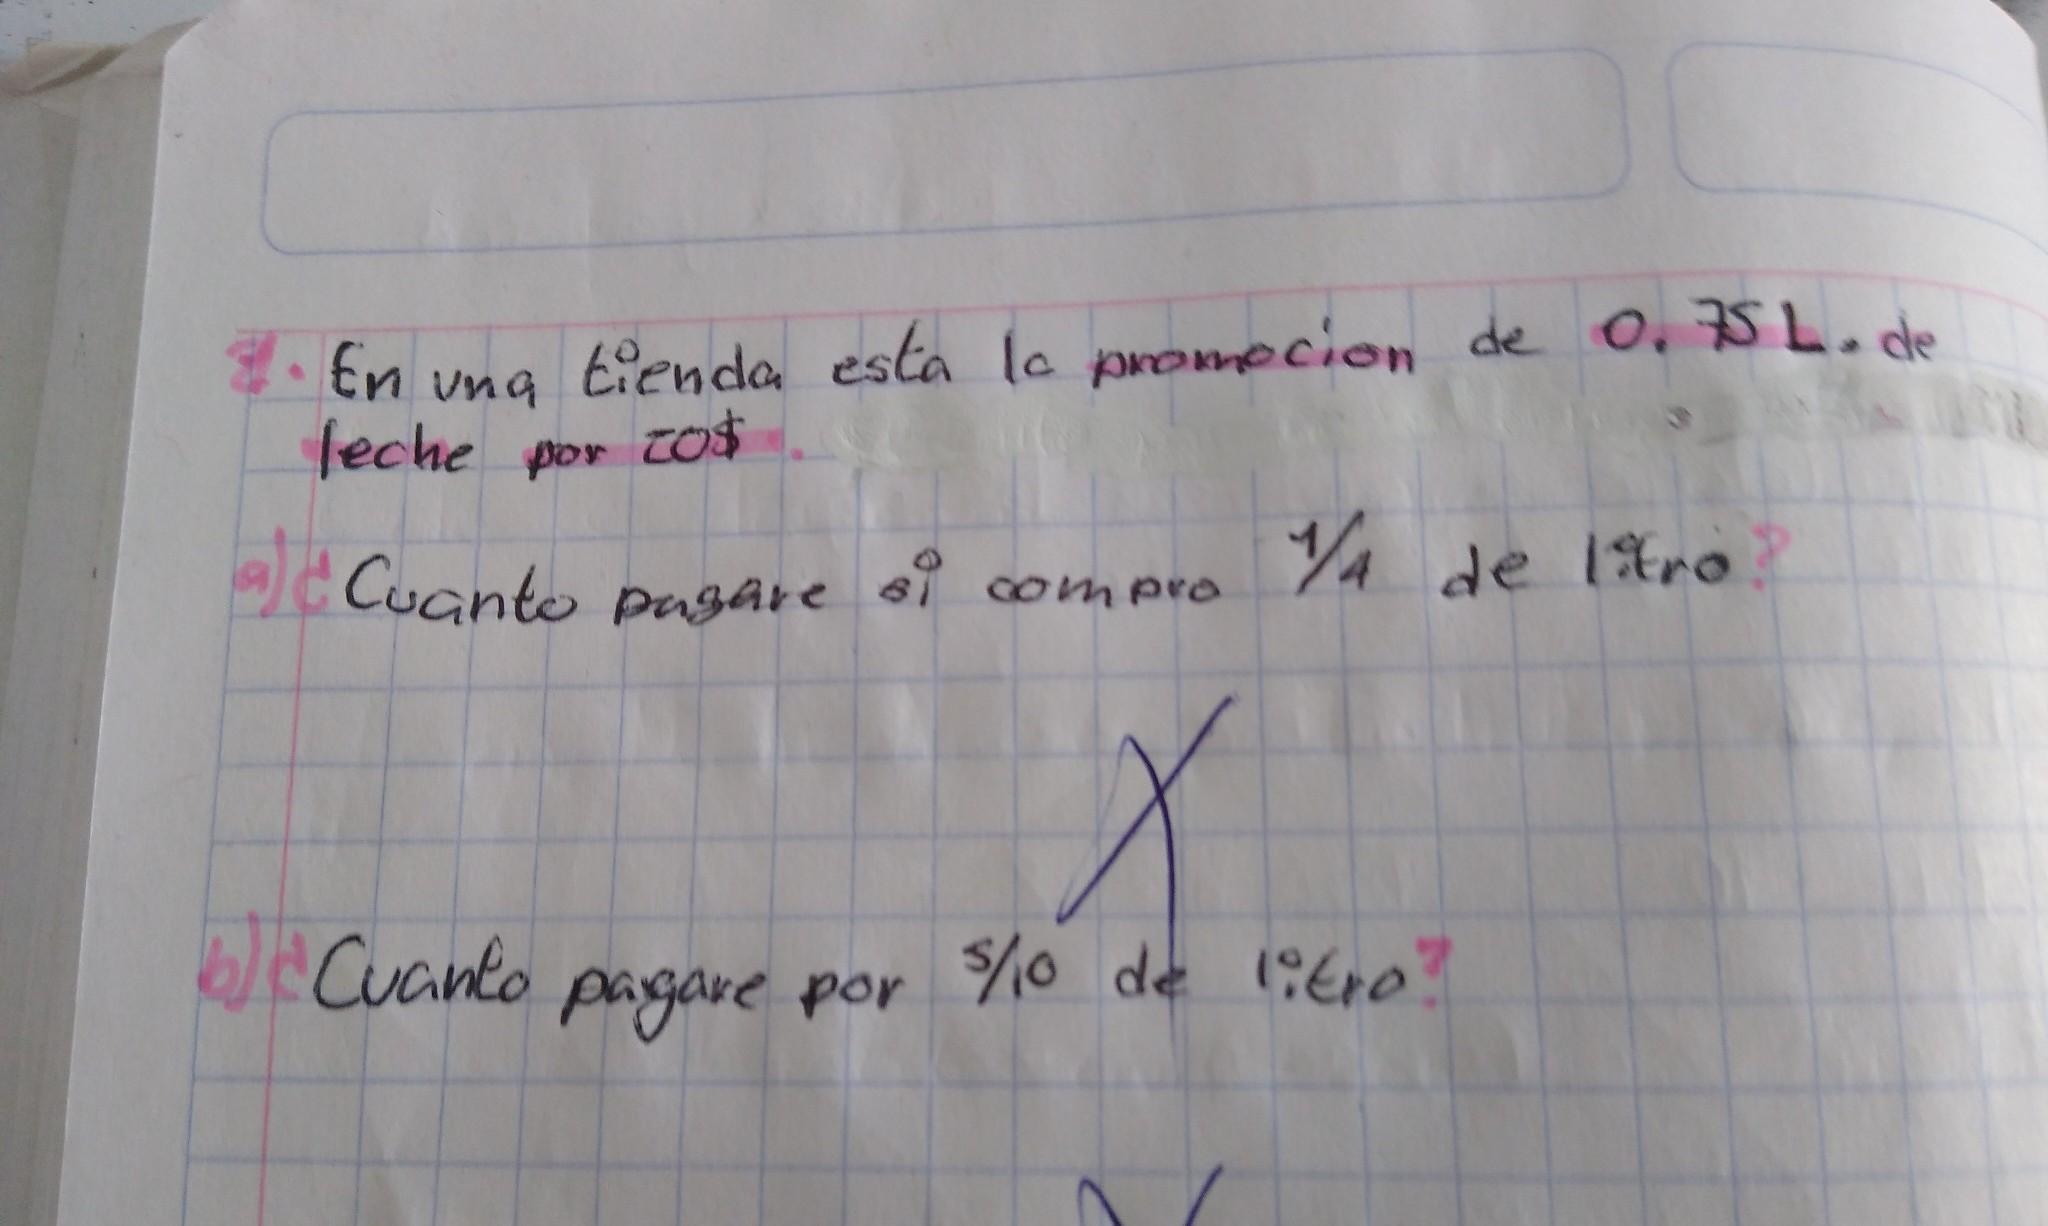 1. En una tienda esta la promocion de 0.75 L. de
leche por 20$.
a) ¿Cuanto pagare si compro 1/4 de litro?
b) ¿Cuanto pagare por 5/10 de litro?